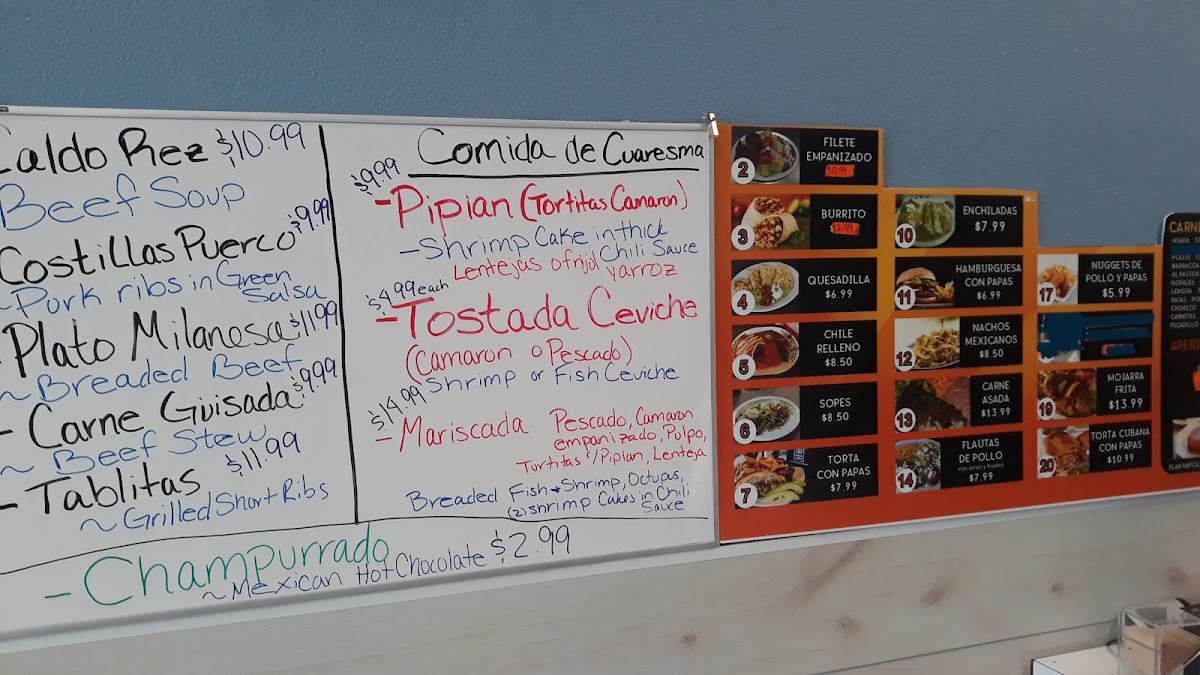 Caldo Rez $10.99
Beef Soup
Costillas Puerco $9.99
~Pork ribs in Green
Salsa
Plato Milanesa $11.99
~Breaded Beef
- Carne Guisada $9.99
~ Beef Stew
- Tablitas $11.99
~Grilled Short Ribs
Comida de Cuaresma
$9.99
-Pipian (Tortitas Camaron)
~Shrimp Cake in thick
Chili Sauce
Lentejas o frijol y arroz
$4.99 each
-Tostada Ceviche
(Camaron o Pescado)
Shrimp or Fish Ceviche
$14.99
- Mariscada Pescado, Camaron
empanizado, Pulpo,
Tortitas c/Pipian, Lenteja
Breaded Fish+Shrimp, Octupas,
(2) Shrimp Cakes in Chili
Sauce
- Champurrado
~Mexican Hot Chocolate $2.99
2
FILETE
EMPANIZADO
3
BURRITO
4
QUESADILLA
$6.99
5
CHILE
RELLENO
$8.50
6
SOPES
$8.50
7
TORTA
CON PAPAS
$7.99
10
ENCHILADAS
$7.99
11
HAMBURGUESA
CON PAPAS
$6.99
12
NACHOS
MEXICANOS
$8.50
13
CARNE
ASADA
$13.99
14
FLAUTAS
DE POLLO
con arroz y frijoles
$7.99
17
NUGGETS DE
POLLO Y PAPAS
$5.99
19
MOJARRA
FRITA
$13.99
20
TORTA CUBANA
CON PAPAS
$10.99